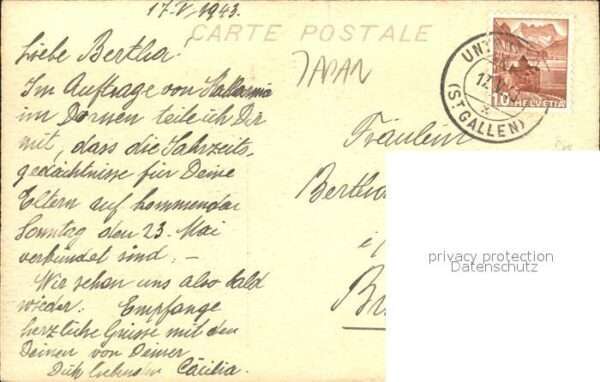 17.V.1943.
CARTE POSTALE
Liebe Bertha!
JAPAN
Im Auftrage von
im Dornen teile ich Dir
mit, dass die Jahrzeits-
gedächtnisse für Deine
Eltern auf kommenden
Sonntag den 23. Mai
verkündet sind. –
Wir sehen uns also bald
wieder. Empfange
herzliche Grüsse mit den
Deinen von Deiner
Dich liebenden Cäcilia.
UNT
17.V
(ST GALLEN)
10 HELVETIA
Fräulein
Bertha
i/
Br
privacy protection
Datenschutz